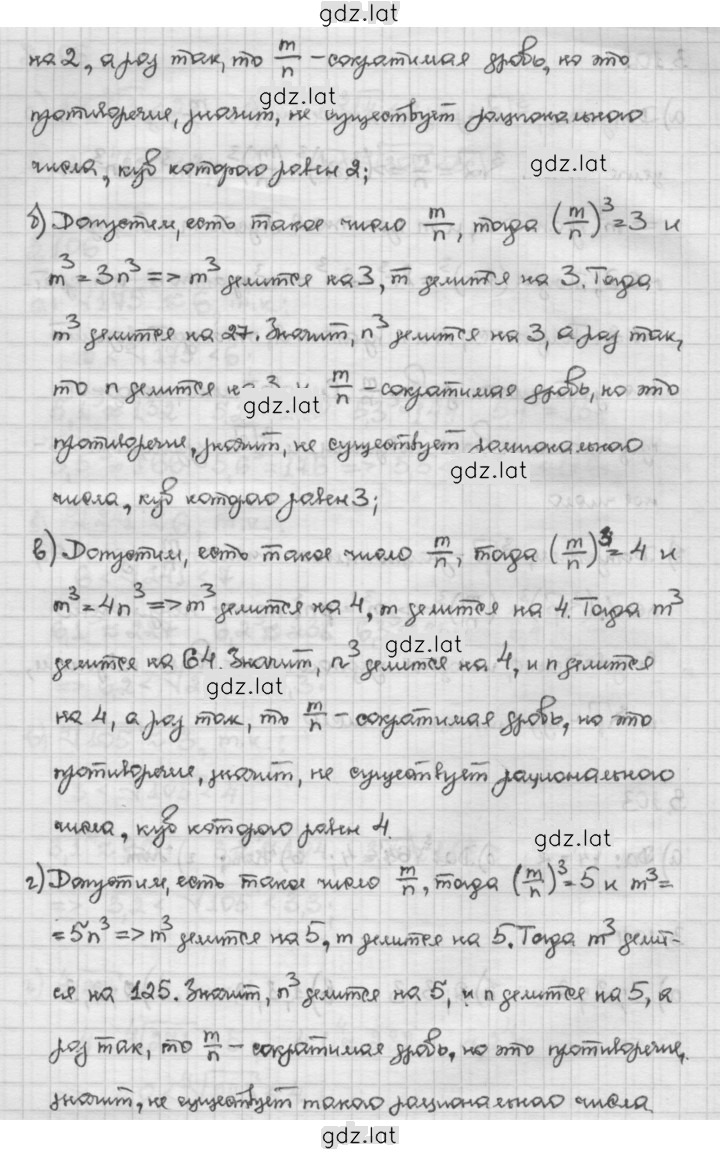 gdz.lat
на 2, а раз так, то m/n - сократимая дробь, но это
gdz.lat
противоречие, значит, не существует рационального
числа, куб которого равен 2;
gdz.lat
б) Допустим, есть такое число m/n, тогда (m/n)³=3 и
m³=3n³ => m³ делится на 3, m делится на 3. Тогда
m³ делится на 27. Значит, n³ делится на 3, а раз так,
то n делится на 3 и m/n - сократимая дробь, но это
gdz.lat
противоречие, значит, не существует рационального
gdz.lat
числа, куб которого равен 3;
в) Допустим, есть такое число m/n, тогда (m/n)³=4 и
m³=4n³ => m³ делится на 4, m делится на 4. Тогда m³
gdz.lat
делится на 64. Значит, n³ делится на 4, и n делится
gdz.lat
на 4, а раз так, то m/n - сократимая дробь, но это
противоречие, значит, не существует рационального
числа, куб которого равен 4.
gdz.lat
г) Допустим, есть такое число m/n, тогда (m/n)³=5 и m³=
=5n³ => m³ делится на 5, m делится на 5. Тогда m³ делит-
ся на 125. Значит, n³ делится на 5, и n делится на 5, а
раз так, то m/n - сократимая дробь, но это противоречие,
значит, не существует такого рационального числа
gdz.lat